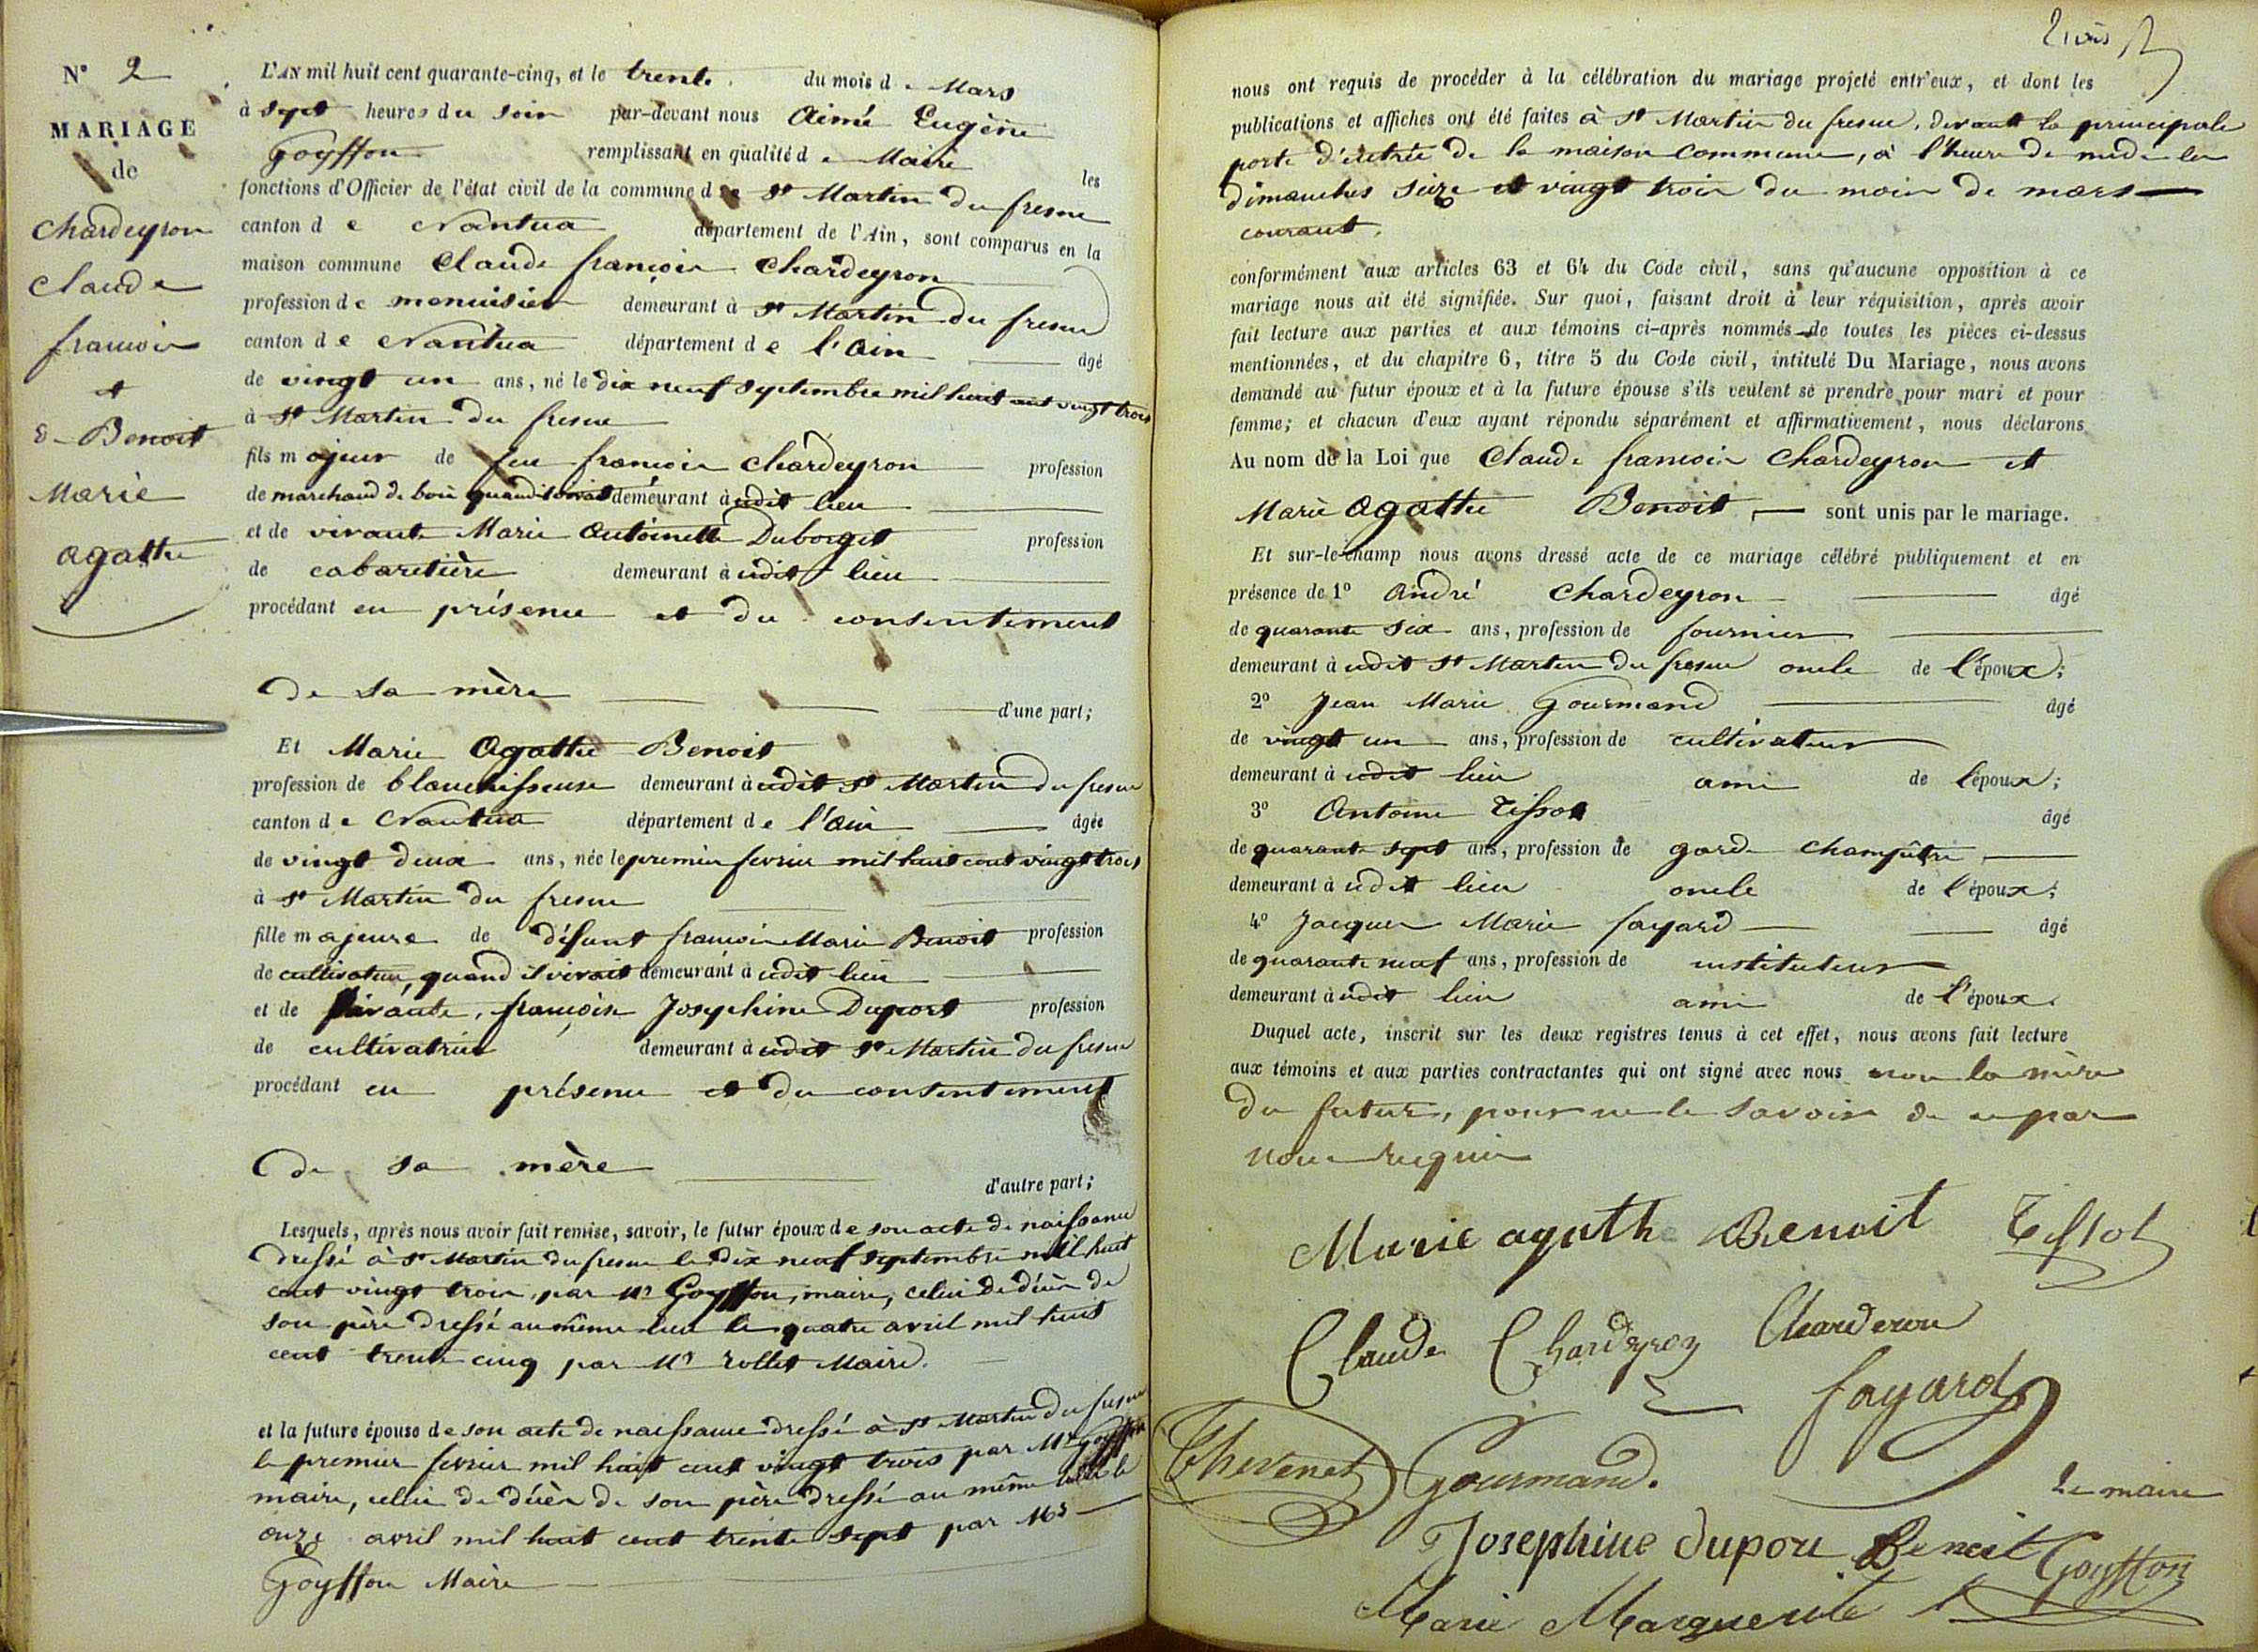 N° 2
MARIAGE
de
Chardeyron
Claude
françois
et
Benoit
Marie
agathe
L'AN mil huit cent quarante-cinq, et le trente du mois de Mars
à sept heures du soir par-devant nous Aimé Eugène
Goyffon remplissant en qualité de Maire les
fonctions d'Officier de l'état civil de la commune de St Martin du fresne
canton de Nantua département de l'Ain, sont comparus en la
maison commune Claude françois Chardeyron
profession de menuisier demeurant à St Martin du fresne
canton de Nantua département de l'Ain âgé
de vingt un ans, né le dix neuf septembre mil huit cent vingt trois
à St Martin du fresne
fils majeur de feu françois Chardeyron profession
de marchand de bois quand vivait demeurant à udit lieu
et de vivante Marie Antoinette Duborget profession
de cabaretière demeurant à udit lieu
procédant en présence et du consentement
de sa mère d'une part;
Et Marie Agathe Benoit
profession de blanchisseuse demeurant à udit St Martin du fresne
canton de Nantua département de l'Ain âgée
de vingt deux ans, née le premier fevrier mil huit cent vingt trois
à St Martin du fresne
fille majeure de défunt françois Marie Benoit profession
de cultivateur, quand il vivait demeurant à udit lieu
et de vivante, françoise Josephine Duport profession
de cultivatrice demeurant à udit St Martin du fresne
procédant en présence et du consentement
de sa mère
d'autre part;
Lesquels, après nous avoir fait remise, savoir, le futur époux de son acte de naissance
dressé à St Martin du fresne le dix neuf septembre mil huit
cent vingt trois, par Mr Goyffon, maire, celui de décès de
son père dressé au même lieu le quatre avril mil huit
cent trente cinq par Mr Rollet Maire.
et la future épouse de son acte de naissance dressé à St Martin du fresne
le premier fevrier mil huit cent vingt trois par Mr Goyffon
maire, celui de décès de son père dressé au même lieu le
onze avril mil huit cent trente sept par Mr
Goyffon Maire
trois
nous ont requis de procéder à la célébration du mariage projeté entr'eux, et dont les
publications et affiches ont été faites à St Martin du fresne, devant la principale
porte d'entrée de la maison commune, à l'heure de midi les
dimanches seize et vingt trois du mois de mars
courant.
conformément aux articles 63 et 64 du Code civil, sans qu'aucune opposition à ce
mariage nous ait été signifiée. Sur quoi, faisant droit à leur réquisition, après avoir
fait lecture aux parties et aux témoins ci-après nommés de toutes les pièces ci-dessus
mentionnées, et du chapitre 6, titre 5 du Code civil, intitulé Du Mariage, nous avons
demandé au futur époux et à la future épouse s'ils veulent se prendre pour mari et pour
femme; et chacun d'eux ayant répondu séparément et affirmativement, nous déclarons
Au nom de la Loi que Claude françois Chardeyron et
Marie Agathe Benoit, sont unis par le mariage.
Et sur-le-champ nous avons dressé acte de ce mariage célébré publiquement et en
présence de 1° André Chardeyron âgé
de quarante six ans, profession de fournier
demeurant à udit St Martin du fresne oncle de l'époux;
2° Jean Marie Gourmand âgé
de vingt un ans, profession de cultivateur
demeurant à udit lieu ami de l'époux;
3° Antoine Tissot âgé
de quarante sept ans, profession de garde champêtre
demeurant à udit lieu oncle de l'époux;
4° Jacques Marie fayard âgé
de quarante neuf ans, profession de instituteur
demeurant à udit lieu ami de l'époux.
Duquel acte, inscrit sur les deux registres tenus à cet effet, nous avons fait lecture
aux témoins et aux parties contractantes qui ont signé avec nous non la mère
du futur, pour ne le savoir de ce par
nous requise
Marie agathe Benoit Tissot
Claude Chardeyron Charderon
fayard
Thevenet Gourmand.
Le maire
Josephine dupor Benoit Goyffon
Marie Marguerite